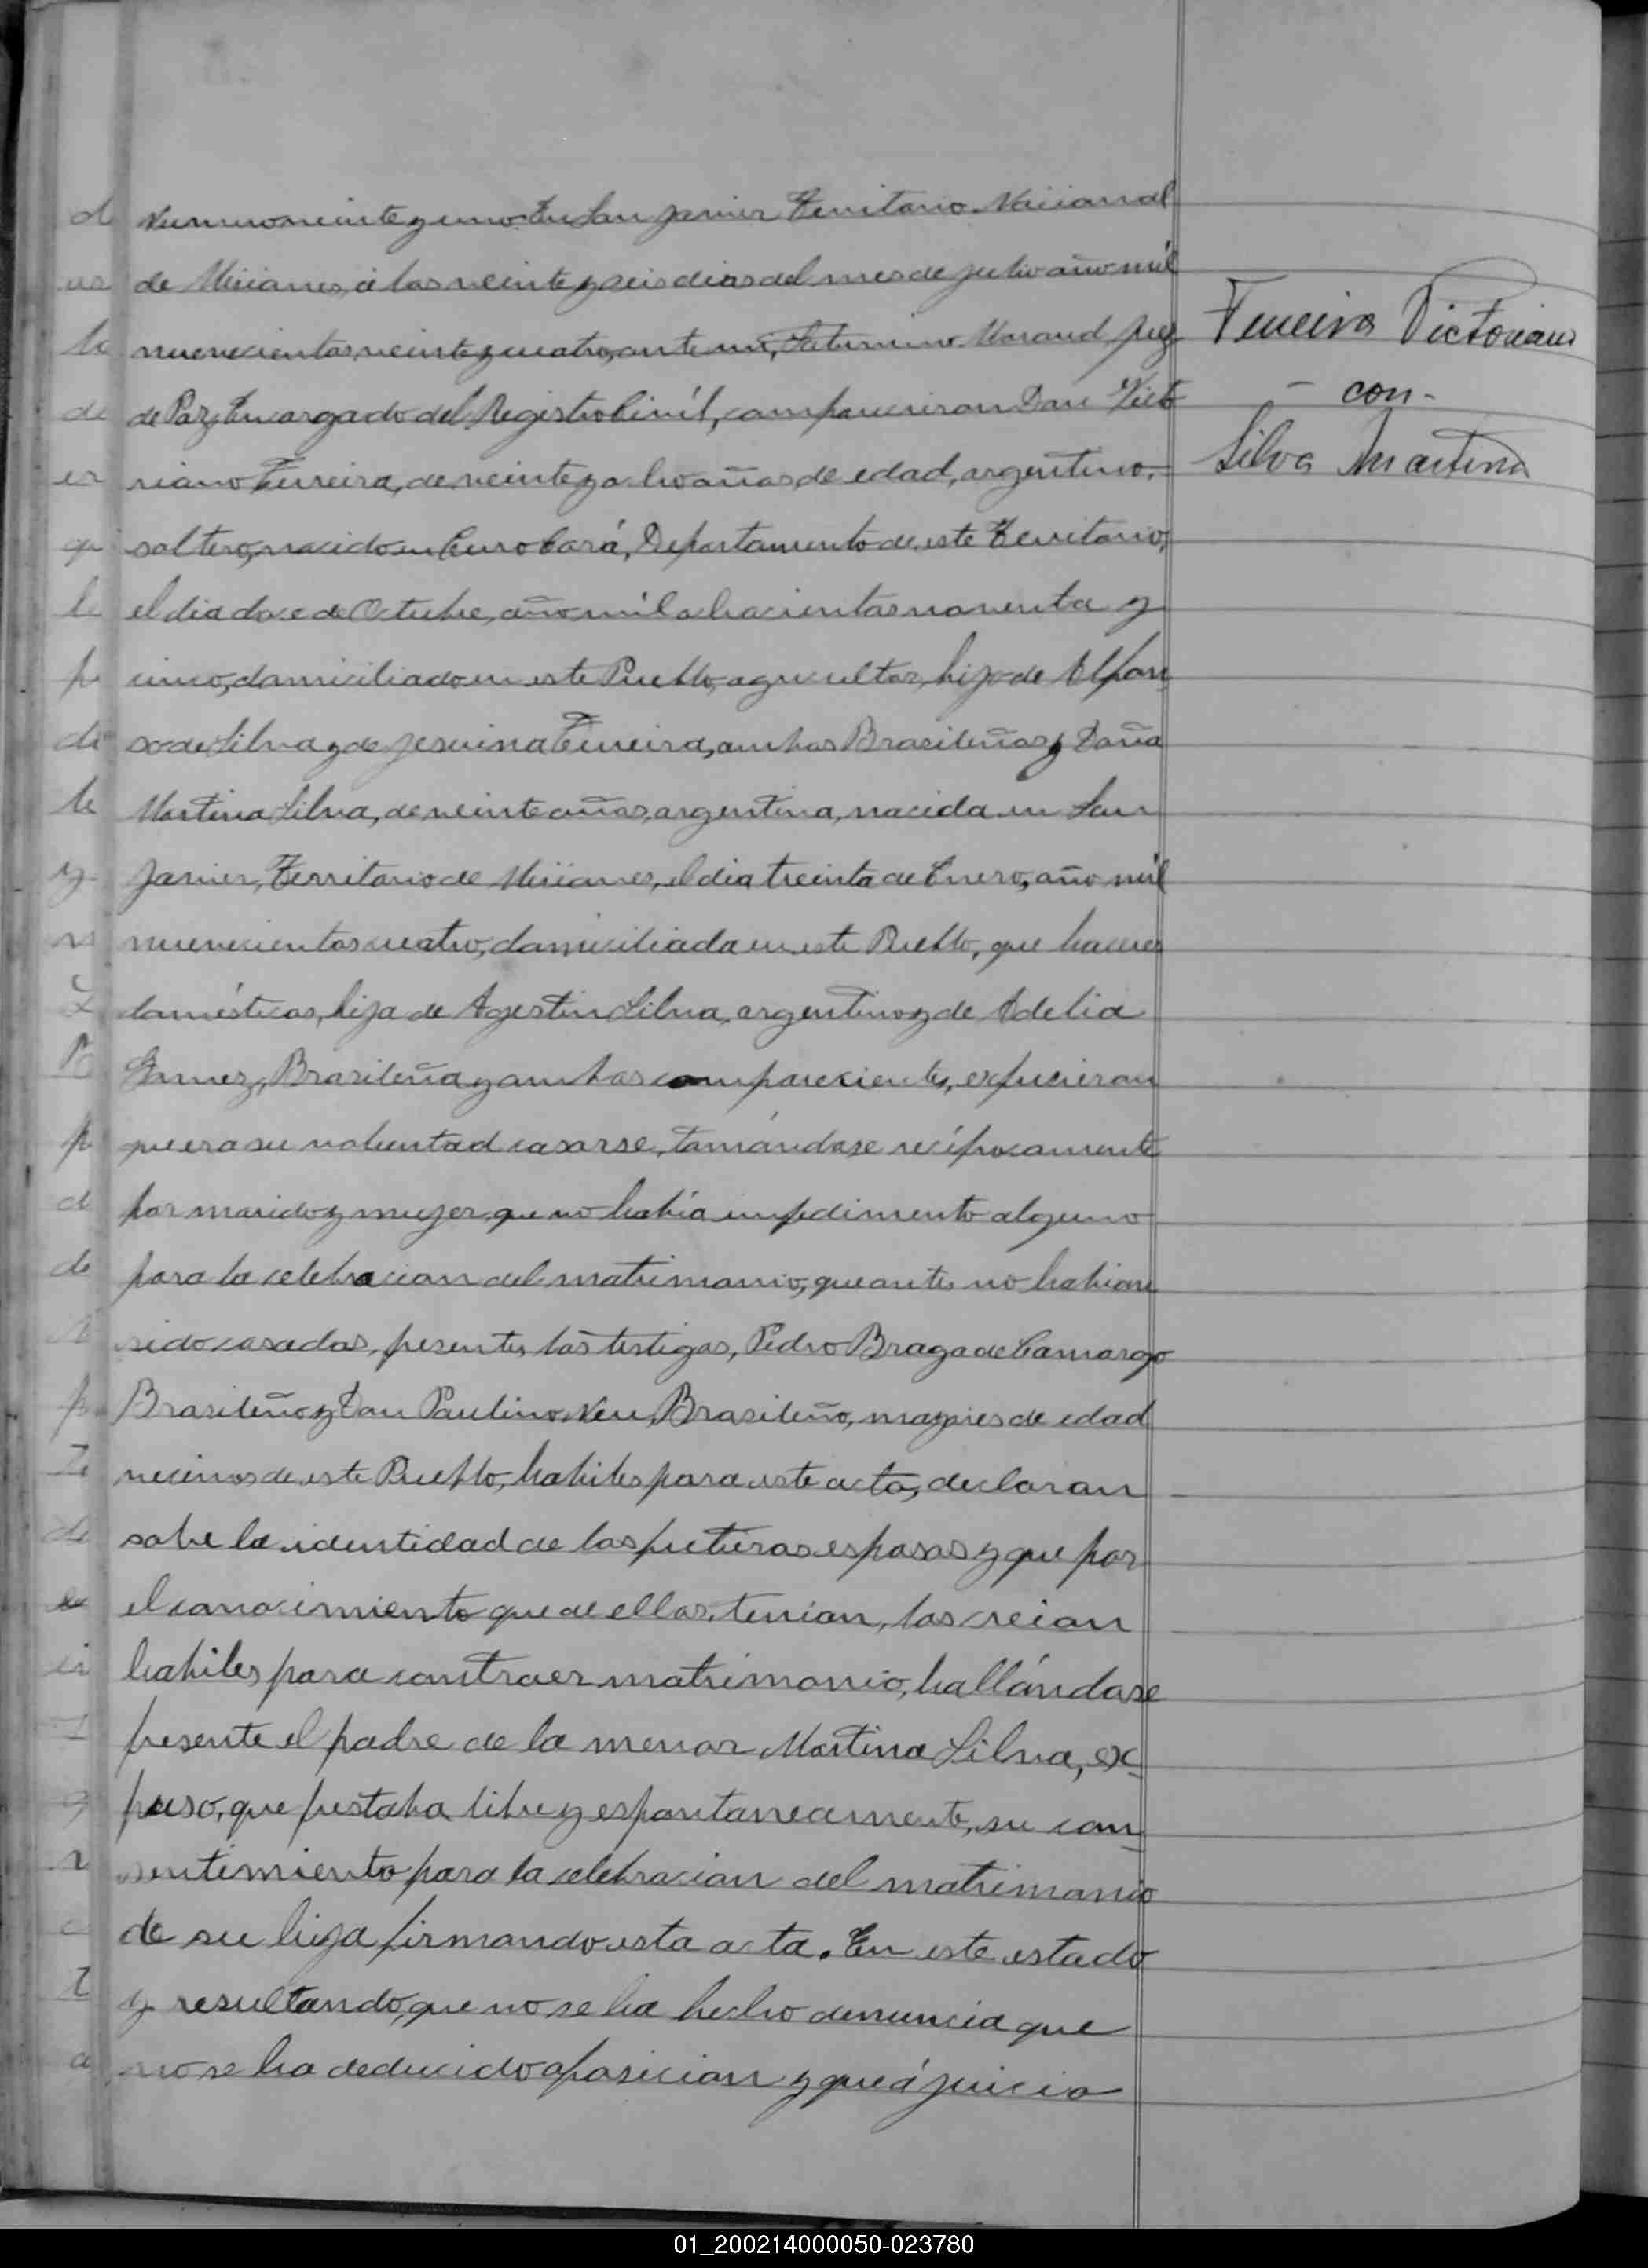 Numero veinte y uno. En San Javier Territorio Nacional
de Misiones, á los veinte y seis dias del mes de julio año mil
novecientos veinte y cuatro, ante mi, Saturnino Morand Juez
de Paz, Encargado del Registro Civil, comparecieron Don Victo
riano Ferreira, de veinte y ocho años de edad, argentino,
soltero, nacido en Cerro Corá, Departamento de este Territorio,
el dia doce de Octubre, año mil ochocientos noventa y
cinco, domiciliado en este Pueblo, agricultor, hijo de Alfon
so de Silva y de Jesuina Ferreira, ambos Brasileños y Doña
Martina Silva, de veinte años, argentina, nacida en San
Javier, Territorio de Misiones, el dia treinta de Enero, año mil
novecientos cuatro, domiciliada en este Pueblo, que haceres
domésticos, hija de Agustin Silva, argentino y de Adelia
Gomez, Brasileña y ambos comparecientes, expusieron
que era su voluntad casarse, tomándose recíprocamente
por marido y mujer que no había impedimento alguno
para la celebracion del matrimonio, que antes no habian
sido casados, presentes los testigos, Pedro Braga de Camargo
Brasileño y Don Paulino Neu, Brasileño, mayores de edad
vecinos de este Pueblo, habiles para este acto, declaran
sobre la identidad de los futuros esposos y que por
el conocimiento que de ellos tenian, los creian
habiles para contraer matrimonio, hallándose
presente el padre de la menor Martina Silva, ex
puso, que prestaba libre y espontaneamente, su con
sentimiento para la celebracion del matrimonio
de su hija firmando esta acta. En este estado
y resultando, que no se ha hecho denuncia que
no se ha deducido oposicion y que á juicio
Ferreira Victoriano
- con -
Silva Martina
01_200214000050-023780